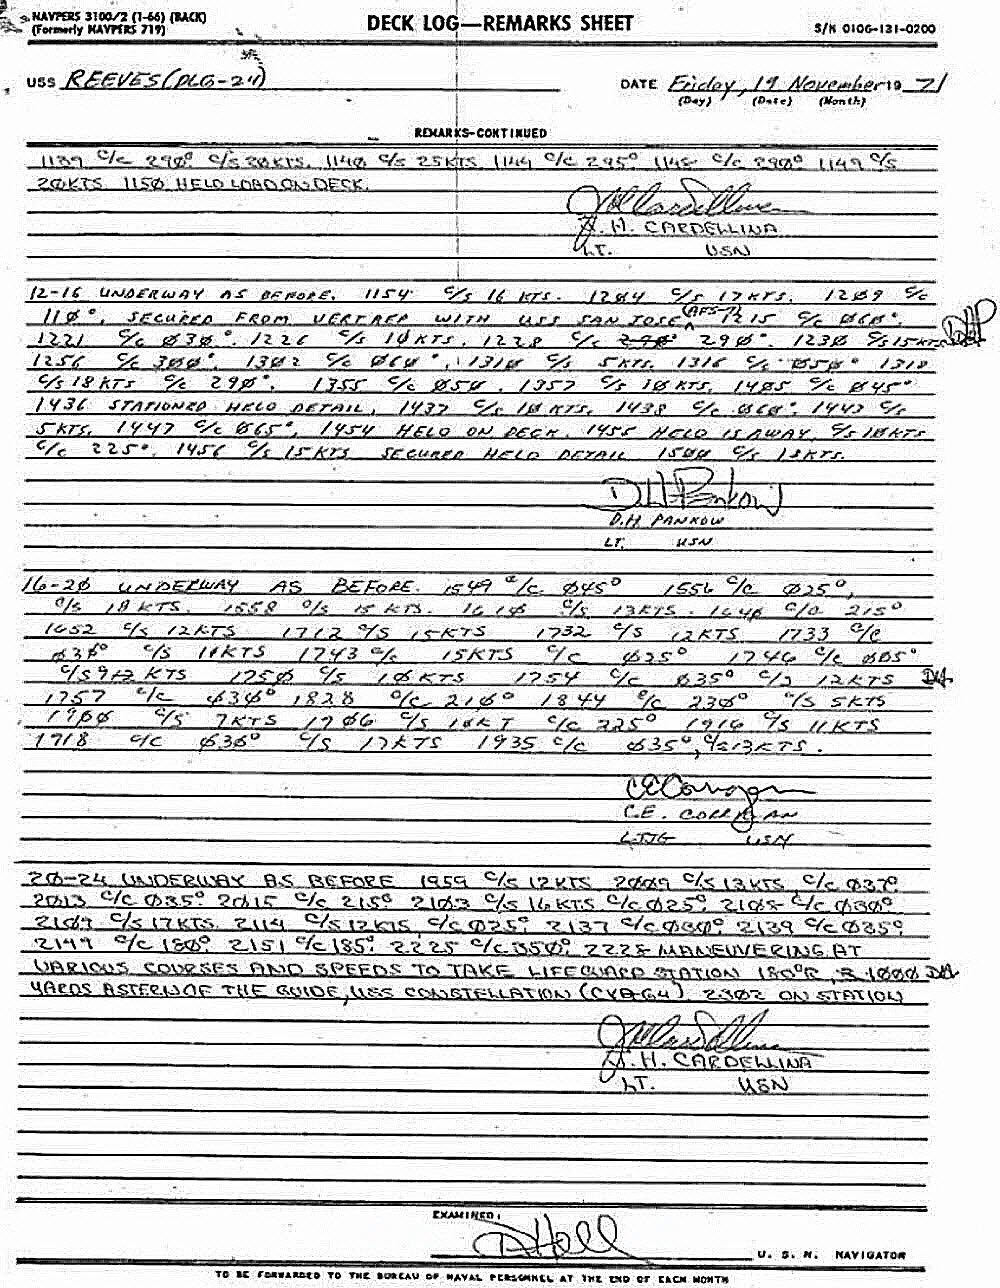 NAVPERS 3100/2 (1-66) (BACK)
(Formerly NAVPERS 719)
DECK LOG—REMARKS SHEET
S/N 0106-131-0200
USS REEVES (DLG-24)
DATE Friday, 19 November 19 71
(Day) (Date) (Month)
REMARKS-CONTINUED
1139 C/C 29Ø° C/S 2ØKTS. 114Ø C/S 25KTS 1144 C/C 295° 1145 C/C 29Ø° 1149 C/S
2ØKTS 115Ø HELO LOAD ON DECK.
J. H. CARDELLINA
LT. USN
12-16 UNDERWAY AS BEFORE. 1154 C/S 16 KTS. 12Ø4 C/S 17 KTS. 12Ø9 C/C
11Ø°, SECURED FROM VERTREP WITH USS SAN JOSE (AFS-7) 1215 C/C Ø6Ø°.
1221 C/C Ø3Ø°. 1226 C/S 1ØKTS. 1228 C/C 29Ø°. 123Ø C/S 15KTS DHP
1256 C/C 3ØØ°. 13Ø2 C/C Ø6Ø°. 131Ø C/S 5KTS. 1316 C/C Ø5Ø° 1318
C/S 18 KTS C/C 29Ø°. 1355 C/C Ø5Ø. 1357 C/S 1Ø KTS. 14Ø5 C/C Ø45°
1436 STATIONED HELO DETAIL. 1437 C/S 1Ø KTS. 1438 C/C Ø6Ø°. 1443 C/S
5KTS. 1447 C/C Ø65°. 1454 HELO ON DECK. 1455 HELO IS AWAY. C/S 1ØKTS
C/C 225°. 1456 C/S 15KTS SECURED HELO DETAIL 15ØØ C/S 13KTS.
D.H. PANKOW
LT. USN
16-2Ø UNDERWAY AS BEFORE. 1549 C/C Ø45° 1556 C/C Ø25°,
C/S 18 KTS. 1558 C/S 15 KTS. 161Ø C/S 13KTS. 164Ø C/C 215°
1652 C/S 12KTS 1712 C/S 15KTS 1732 C/S 12KTS. 1733 C/C
Ø3Ø° C/S 1ØKTS 1743 C/S 15KTS C/C Ø25° 1746 C/C ØØ5°
C/S 9 KTS 175Ø C/S 1Ø KTS 1754 C/C Ø35° C/S 12KTS
1757 C/C Ø3Ø° 1828 C/C 21Ø° 1844 C/C 23Ø° C/S 5KTS
19ØØ C/S 7KTS 19Ø6 C/S 1ØKT C/C 225° 1916 C/S 11KTS
1918 C/C Ø3Ø° C/S 17KTS 1935 C/C Ø35°, C/S 13KTS.
C.E. CORRIGAN
LTJG USN
2Ø-24 UNDERWAY AS BEFORE 1959 C/S 12KTS 2ØØ9 C/S 13KTS, C/C Ø37°
2Ø13 C/C Ø35° 2Ø15 C/C 215° 21Ø3 C/S 16KTS C/C Ø25°, 21Ø5 C/C Ø3Ø°
21Ø9 C/S 17KTS. 2114 C/S 12KTS, C/C Ø25° 2137 C/C Ø3Ø° 2139 C/C Ø35°
2149 C/C 18Ø° 2151 C/C 185° 2225 C/C 35Ø° 2228 MANEUVERING AT
VARIOUS COURSES AND SPEEDS TO TAKE LIFEGUARD STATION 18Ø°R, 1ØØØ
YARDS ASTERN OF THE GUIDE, USS CONSTELLATION (CVA-64). 23Ø2 ON STATION
J. H. CARDELLINA
LT. USN
EXAMINED:
D Hall
U. S. N. NAVIGATOR
TO BE FORWARDED TO THE BUREAU OF NAVAL PERSONNEL AT THE END OF EACH MONTH